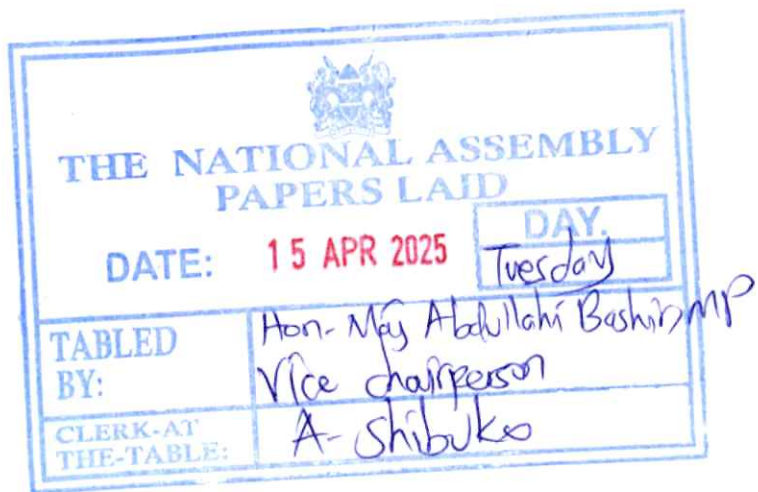 THE NATIONAL ASSEMBLY
PAPERS LAID
DATE: 15 APR 2025
DAY.
Tuesday
TABLED BY:
Hon- Maj Abdullahi Bashir, MP
Vice chairperson
CLERK-AT THE-TABLE:
A- Shibuko